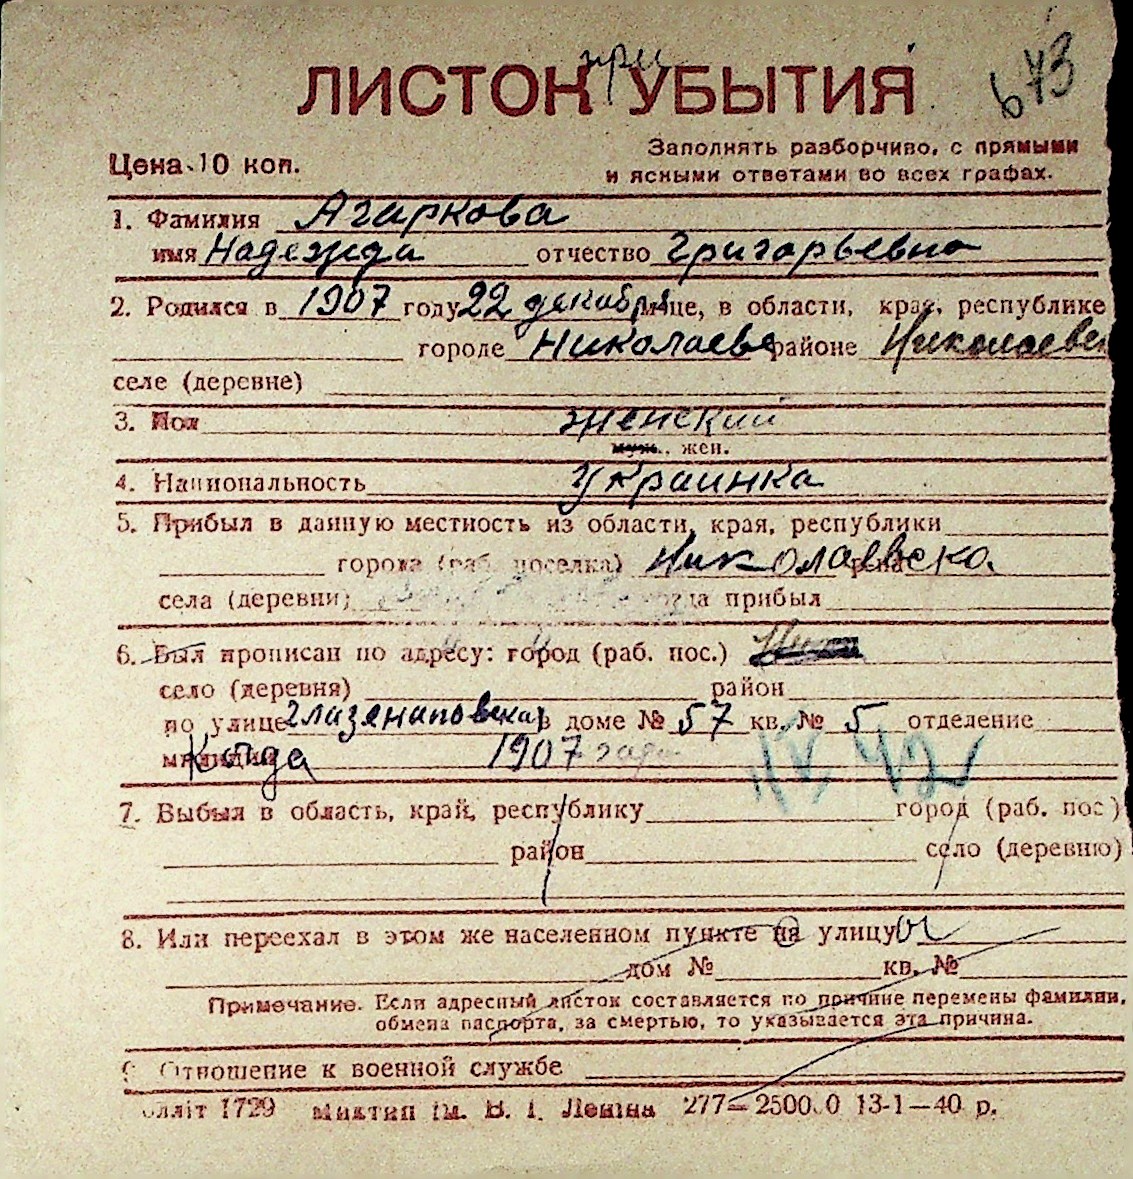 при 673
ЛИСТОК УБЫТИЯ
Цена 10 коп. Заполнять разборчиво, с прямыми
и ясными ответами во всех графах.
1. Фамилия Агаркова
имя Надежда отчество Григорьевна
2. Родился в 1907 году 22 декабря м-це, в области, крае, республике
городе Николаеве районе Николаевск
селе (деревне)
3. Пол женский
муж., жен.
4. Национальность Украинка
5. Прибыл в данную местность из области, края, республики
города (раб. поселка) Николаевска
села (деревни) прибыл
6. Был прописан по адресу: город (раб. пос.)
село (деревня) район
по улице Глазенаповская в доме № 57 кв. № 5 отделение
милиции Когда 1907 года
42
7. Выбыл в область, край, республику город (раб. пос.)
район село (деревню)
8. Или переехал в этом же населенном пункте на улицу
дом № кв. №
Примечание. Если адресный листок составляется по причине перемены фамилии,
обмена паспорта, за смертью, то указывается эта причина.
9. Отношение к военной службе
1729 ім. В. І. Леніна 277—2500.0 13-1—40 р.